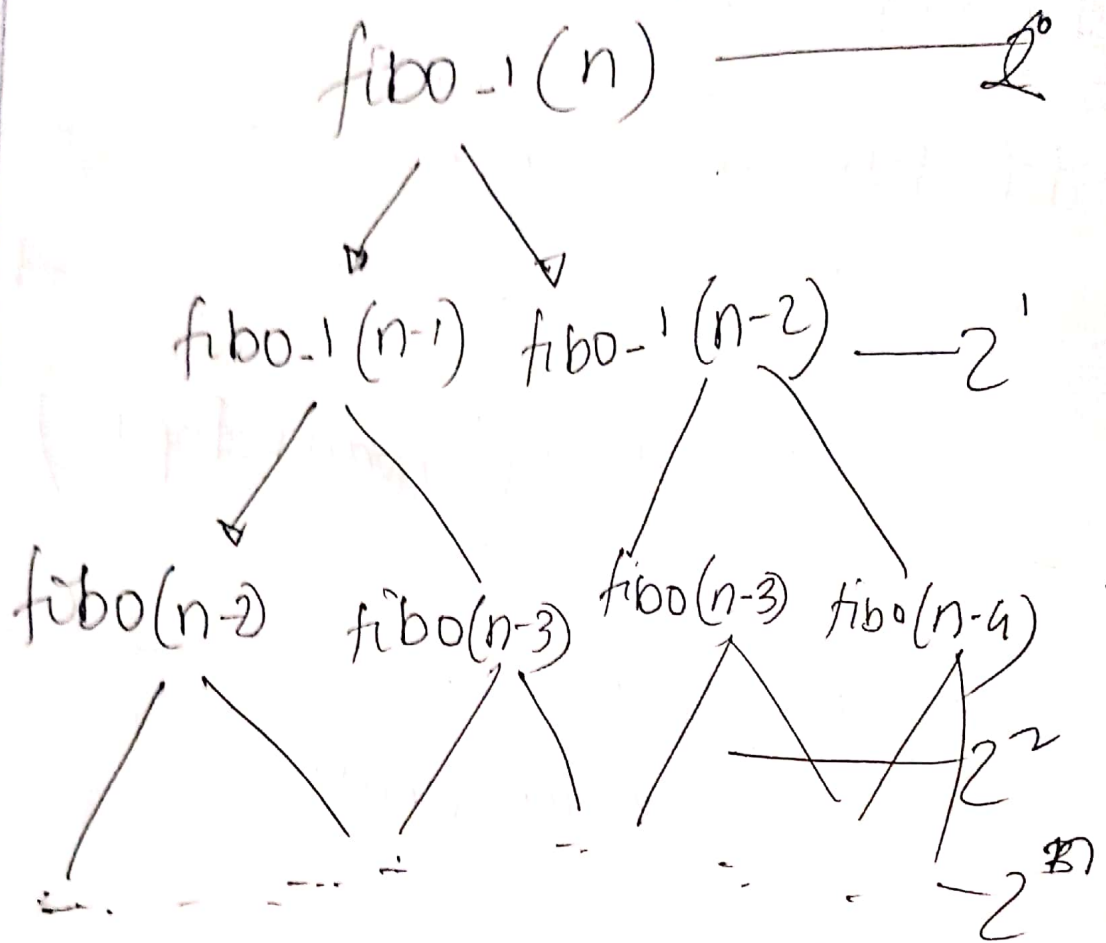 fibo_1(n) 2^0
fibo_1(n-1) fibo_1(n-2) 2^1
fibo(n-2) fibo(n-3) fibo(n-3) fibo(n-4)
2^2
2